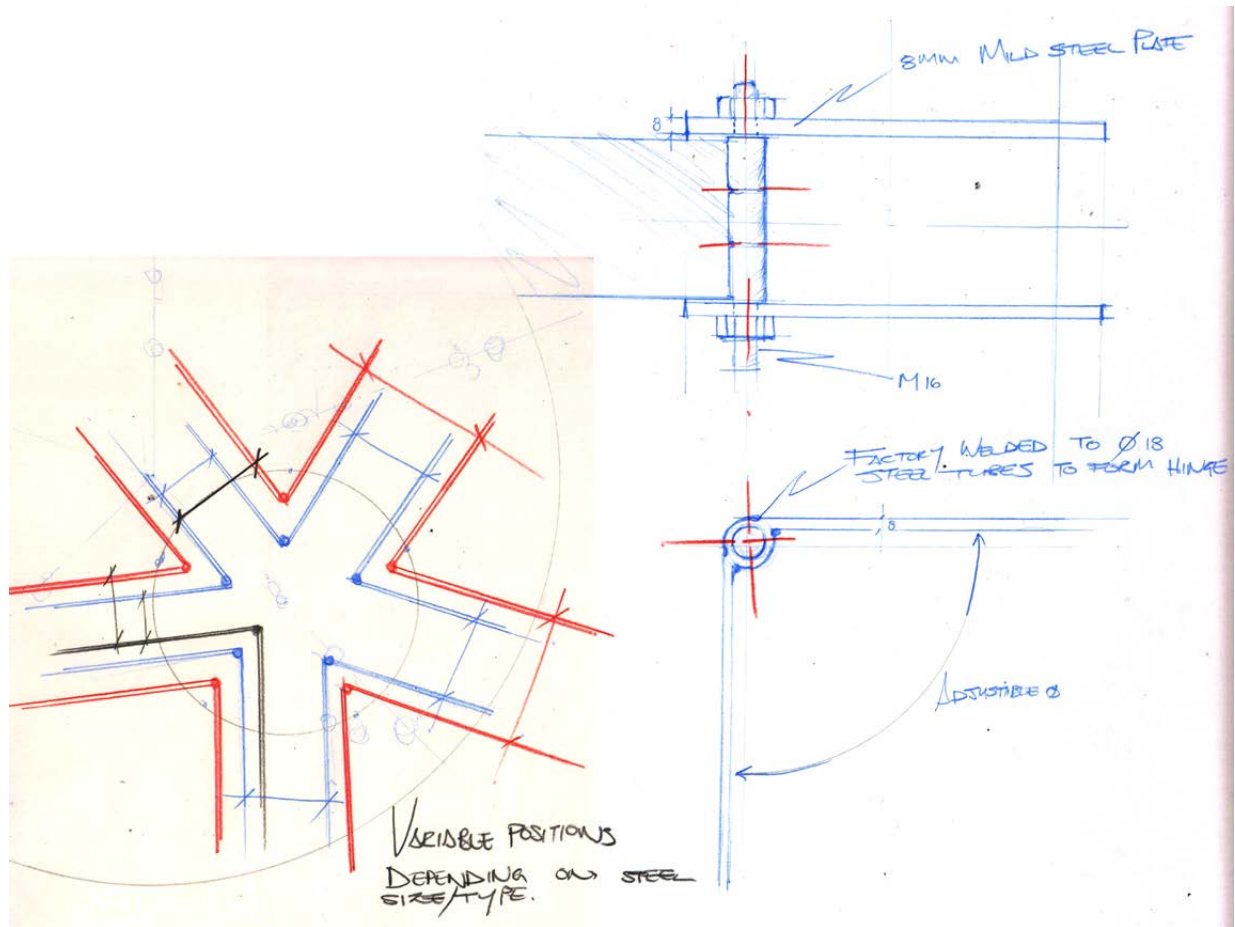 8MM MILD STEEL PLATE
8
M16
FACTORY WELDED TO Ø 18
STEEL TUBES TO FORM HINGE
8
ADJUSTIBLE Ø
VARIABLE POSITIONS
DEPENDING ON STEEL
SIZE/TYPE.